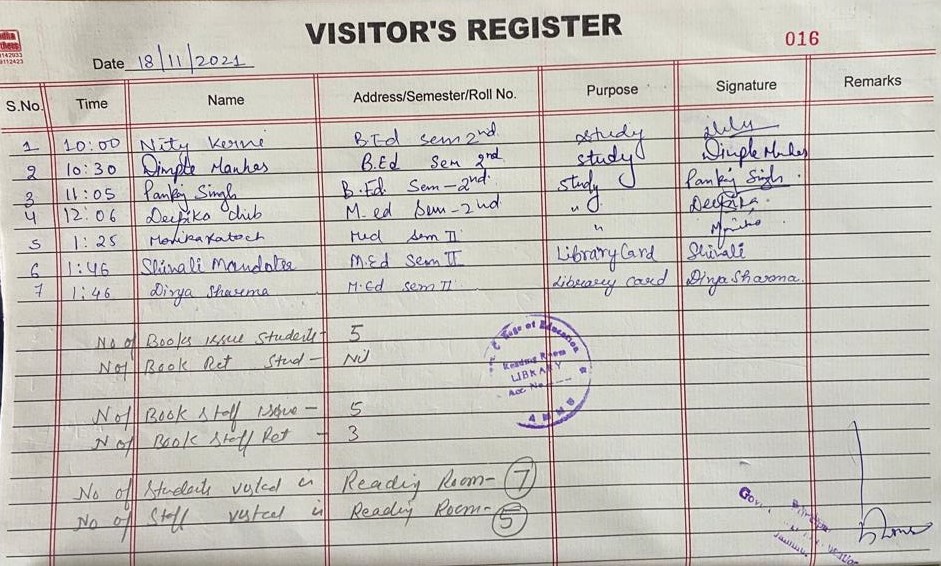 VISITOR'S REGISTER
016
Date 18/11/2021
S.No. Time Name Address/Semester/Roll No. Purpose Signature Remarks
1 10:00 Nity Kerni B.Ed sem 2nd study
2 10:30 Dimple Manhas B.Ed Sem 2nd study Dimple Manhas
3 11:05 Pankij Singh B.Ed. Sem-2nd. study Pankij Singh.
4 12:06 Deepika chib M.ed Sem-2nd " Deepika
5 1:25 Monika Katoch Med Sem II " Monika
6 1:46 Shivali Mandotra M.Ed Sem II Library Card Shivali
7 1:46 Divya Sharma M.Ed sem II Library card Divya Sharma.
No of Books issue Students- 5
No of Book Ret Stud- Nil
N of Book Staff issue- 5
N of Book Staff Ret - 3
No of Students visted in Reading Room- 7
No of Staff visted in Reading Room- 5
College of Education
Reading Room
LIBRARY
Acc. No.